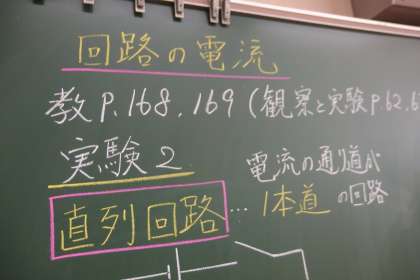 回路の電流
教P.168,169(観察と実験P.62,6
実験2
電流の通り道が
直列回路…1本道の回路